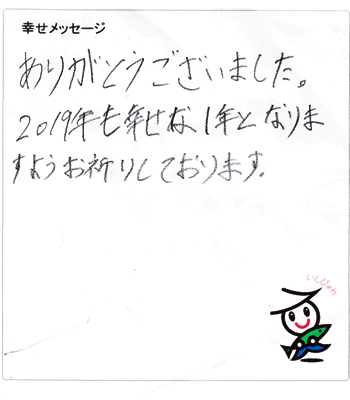 幸せメッセージ
ありがとうございました。
2019年も幸せな1年となりま
すようお祈りしております。